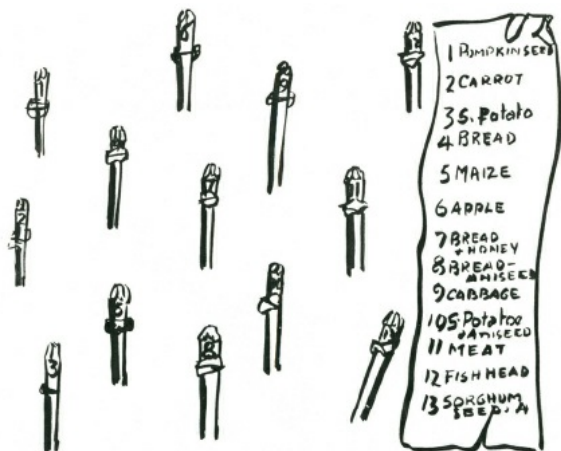 1 PUMPKINSEED
2 CARROT
3 S. Potato
4 BREAD
5 MAIZE
6 APPLE
7 BREAD
+ HONEY
8 BREAD-
ANISEED
9 CABBAGE
10 S. Potatoe
+ ANISEED
11 MEAT
12 FISH HEAD
13 SORGHUM
SEED. A
1
2
3